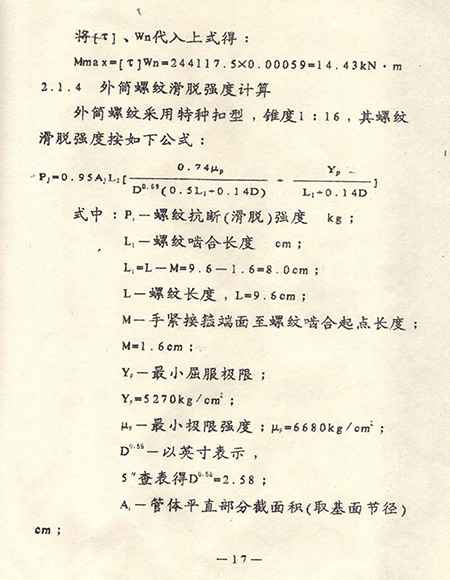 将[τ]、Wn代入上式得：
Mmax=[τ]Wn=244117.5×0.00059=14.43kN·m
2.1.4 外筒螺纹滑脱强度计算
外筒螺纹采用特种扣型，锥度1：16，其螺纹
滑脱强度按如下公式：
Pj=0.95AjL1[0.74μp/D^0.59(0.5L1+0.14D) + Yp/L1+0.14D]
式中：Pj—螺纹抗断(滑脱)强度 kg；
L1—螺纹啮合长度 cm；
L1=L—M=9.6—1.6=8.0cm；
L—螺纹长度，L=9.6cm；
M—手紧接箍端面至螺纹啮合起点长度；
M=1.6cm；
Yp—最小屈服极限；
Yp=5270kg/cm²；
μp—最小极限强度；μp=6680kg/cm²；
D^0.59—以英寸表示，
5"查表得D^0.59=2.58；
Aj—管体平直部分截面积(取基面节径)
cm；
—17—